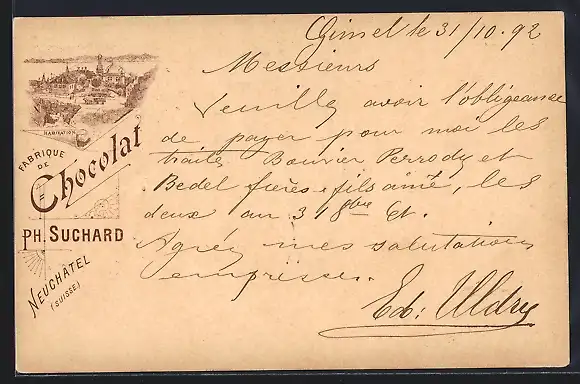 HABITATION
FABRIQUE
DE
Chocolat
PH. SUCHARD
NEUCHATEL
(SUISSE)
Gimel le 31/10.92
Messieurs
Veuillez avoir l'obligeance
de payer pour moi les
traites Bouvier Perrody et
Bedel frères & fils ainé, les
deux au 31 8bre Ct.
Agréez mes salutations
empressées.
Ed: Uldry